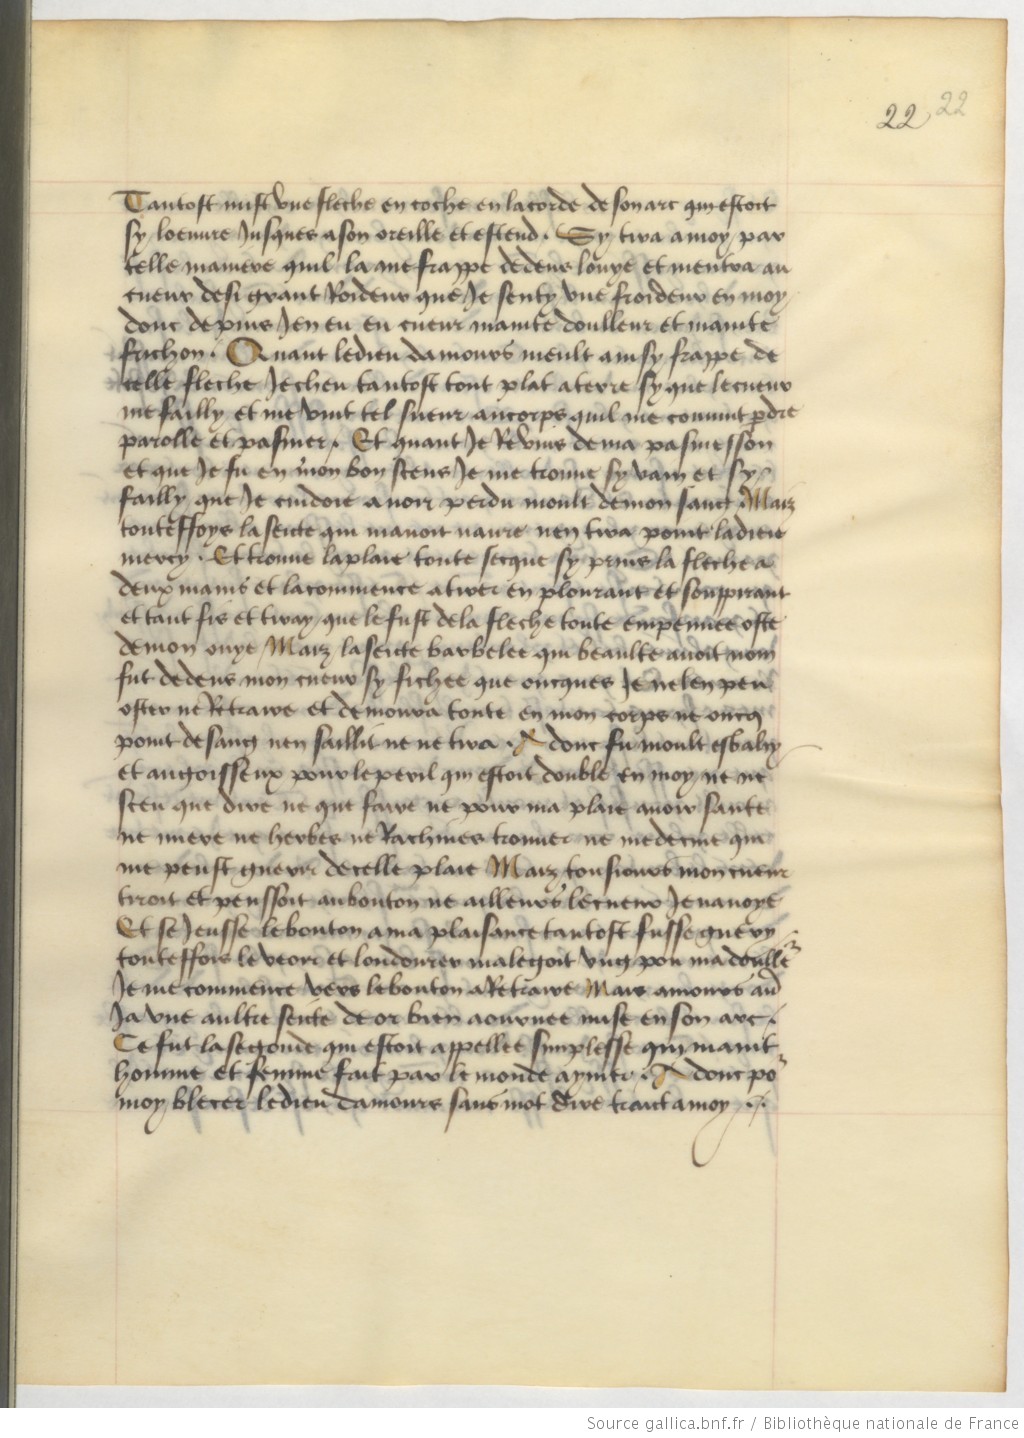 22 22
Tantost mist vne fleche en coche en la corde de son arc qui estoit
sy loeuure Jusques a son oreille et estend. Sy tira a moy par
telle maniere quil la me frappe dedens louye et mentra au
cueur de si grant Roideur que Je senty vne froideur en moy
donc depuis Jen eu en cueur mainte doulleur et mainte
frichon. Quant le dieu damours meult ainsy frappe de
celle fleche Je cheu tantost tout plat a terre sy que le cueur
me failly et me vint tel sueur au corps quil me conuint pdre
parolle et pasmer. Et quant Je Reuins de ma pasmesson
et que Je fu en mon bon scens Je me trouue sy vain et sy
failly que Je cuidoie auoir perdu moult de mon sanc. Maiz
touteffoys la seete qui mauoit naure nen tira point la dieu
mercy. Et trouue la plaie toute secque sy prins la fleche a
deux mains et la commence a tirer en plourant et souppirant
et tant fis et tiray que le fust de la fleche toute empennee oste
de mon ouye Maiz la seete barbelee qui beaulte auoit nom
fut dedens mon cueur sy fichee que oncques Je ne len peu
oster ne Retraire et demoura toute en mon corps ne oncq
point de sang nen saillit ne ne tira. A donc fu moult esbahy
et angoisseux pour le peril qui estoit double en moy ne ne
sceu que dire ne que faire ne pour ma plaie auoir sante
ne mire ne herbes ne Rachines trouuer ne medecine qui
me peust guerir de celle plaie Maiz tousiours mon cueur
tiroit et penssoit au bouton ne ailleurs le cueur Je nauoye
Et se Jeusse le bouton a ma plaisance tantost fusse guery
touteffois le veoir et londourer malegoit vng pou ma doulle
Je me commence vers le bouton a Retraire Mais amours aud
Ja vne aultre seete de or bien aournee mise en son arc.
Ce fut la segonde qui estoit appellee simplesse qui maint
homme et femme fait par le monde aymer. A donc po
moy blecer le dieu damours sans mot dire traict a moy
Source gallica.bnf.fr / Bibliothèque nationale de France